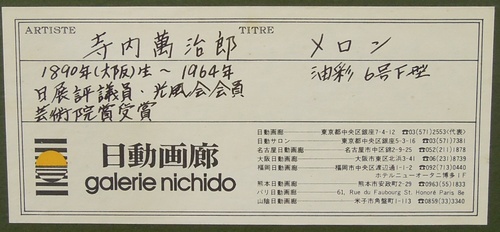 ARTISTE 寺内萬治郎 TITRE メロン
1890年(大阪)生~1964年 油彩 6号F型
日展評議員・光風会会員
芸術院賞受賞
日動画廊
galerie nichido
日動画廊 東京都中央区銀座7-4-12 ☎03(571)2553(代表)
日動サロン 東京都中央区銀座5-3-16 ☎03(571)7381
名古屋日動画廊 名古屋市中区錦2-9-25 ☎052(211)878
大阪日動画廊 大阪市東区北浜3-41 ☎06(231)8739
福岡日動画廊 福岡市中央区渡辺通1-1-2 ☎092(713)0440
ホテルニューオータニ博多1F
熊本日動画廊 熊本市安政町2-29 ☎0963(55)1833
パリ日動画廊 61, Rue du Faubourg St. Honoré Paris 8e
山陰日動画廊 米子市角盤町1-113 ☎0859(33)3340